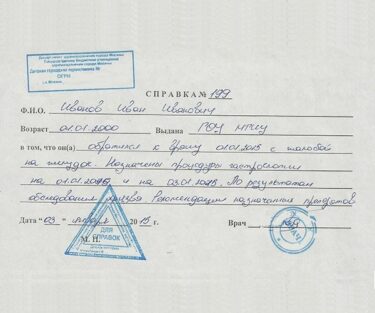 Департамент здравоохранения города Москвы
Государственное бюджетное учреждение
здравоохранения города Москвы
Детская городская поликлиника
ОГРН
г. Москва
СПРАВКА № 199
Ф.И.О. Иванов Иван Иванович
Возраст 01.01.2000 Выдана ГОУ
в том, что он(а) обратился к врачу 01.01.2015 с жалобой
на желудок. Назначены процедуры гастроскопии
на 01.01.2015 и на 03.01.2015. По результатам
обследования Рекомендации назначенных препаратов
Дата "03" января 2015 г. Врач
М.П.
ДЛЯ
СПРАВОК
ВРАЧ